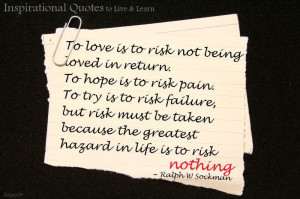 Inspirational Quotes to Live & Learn
To love is to risk not being
loved in return.
To hope is to risk pain.
To try is to risk failure,
but risk must be taken
because the greatest
hazard in life is to risk
nothing
~ Ralph W Sockman